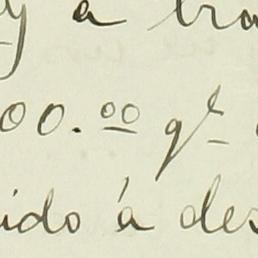 y a tra
00.00 ge
ido á des